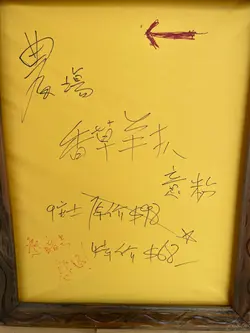 農場
香草羊扒
意粉
9安士 原价$98
特价$68